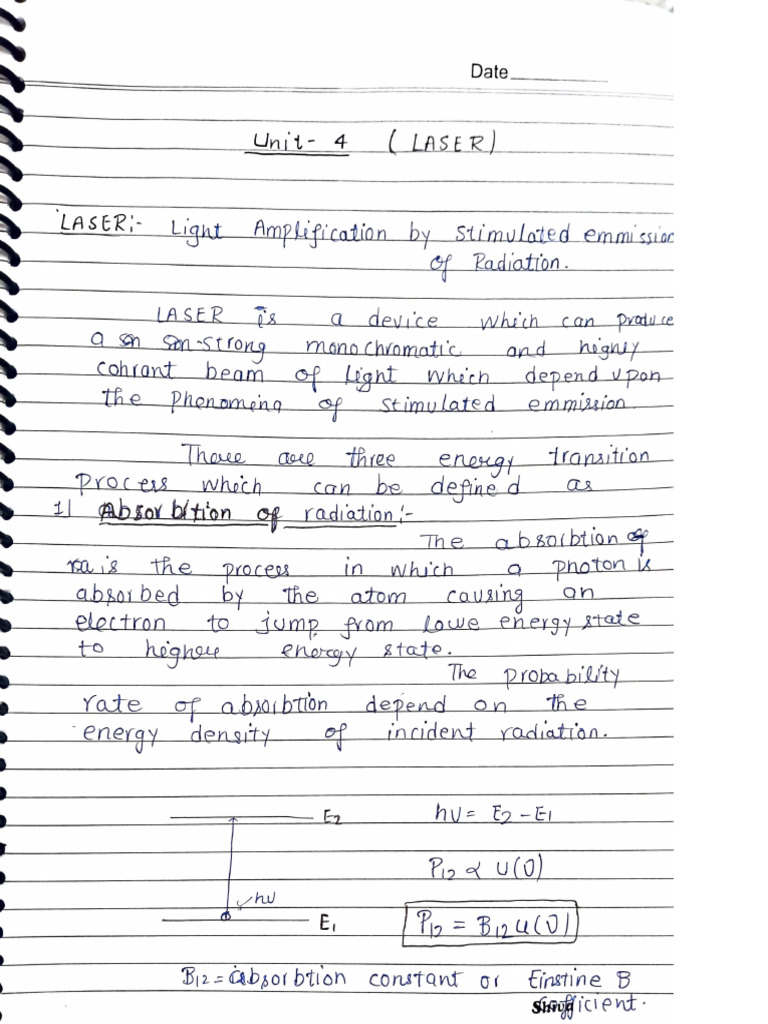 Date
Unit- 4 ( LASER)
LASER:- Light Amplification by stimulated emmission
of Radiation.
LASER is a device which can produce
a strong monochromatic and highly
cohrant beam of light which depend upon
the phenomina of stimulated emmission
There are three energy transition
process which can be defined as
1) Absorbition of radiation:-
The absorbtion of
ra is the process in which a photon is
absorbed by the atom causing an
electron to jump from lowe energy state
to higher energy state.
The probability
rate of absorbtion depend on the
energy density of incident radiation.
E2 hυ = E2 - E1
P12 ∝ U(υ)
hυ
E1 P12 = B12 u(υ)
B12 = absorbtion constant or Einstine B
cofficient.